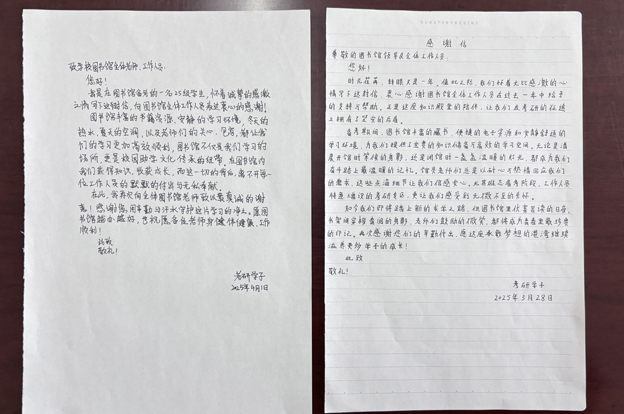 致学校图书馆全体老师、工作人员:
您好!
我是在图书馆备考的一名25级学生,怀着诚挚的感激
之情写下这封信,向图书馆全体工作人员表达衷心的感谢!
图书馆丰富的书籍资源、安静的学习环境,冬天的
热水、夏天的空调,以及老师们的关心、包容,都让我
们的学习更加高效顺利,图书馆不仅是我们学习的
场所,更是校园助学文化传承的纽带,在图书馆内
我们获得知识、收获成长,而这一切的背后,离不开每一
位工作人员的默默的付出与无私奉献。
在此,我再次向全体图书馆老师致以最真诚的谢
意!感谢您,用辛勤与汗水守护这片学习的净土。愿图
书馆越办越好,也祝愿各位老师身体健康,工作
顺利!
此致
敬礼!
考研学子
2025年4月1日
感谢信
尊敬的图书馆领导及全体工作人员:
您好!
时光荏苒,转眼又是一年,值此之际,我们怀着无比感激的心
情写下这封信,衷心感谢图书馆全体工作人员在过去一年中给予
的支持与帮助,正是这座知识殿堂的陪伴,让我们在考研的征途
上拥有了坚实的后盾。
备考期间,图书馆丰富的藏书、便捷的电子资源和安静舒适的
学习环境,为我们提供了宝贵的知识储备与高效的学习空间,无论是清
晨开馆时等候的身影,还是闭馆时一盏盏温暖的灯光,都成为我们奋
斗路上最温暖的记忆,馆员老师们总是以耐心和热情回应我们
的需求,这些点滴细节让我们倍感安心,尤其临近备考阶段,工作人员
如今我们即将踏上新的求学之路,但图书馆里伏案苦读的日夜、
书架间穿梭查阅的身影、老师们鼓励的微笑,都将成为青春里最珍贵
的印记。再次感谢您们的辛勤付出,愿这座承载梦想的港湾继续
滋养更多学子的成长!
此致
敬礼!
考研学子
2025年3月28日